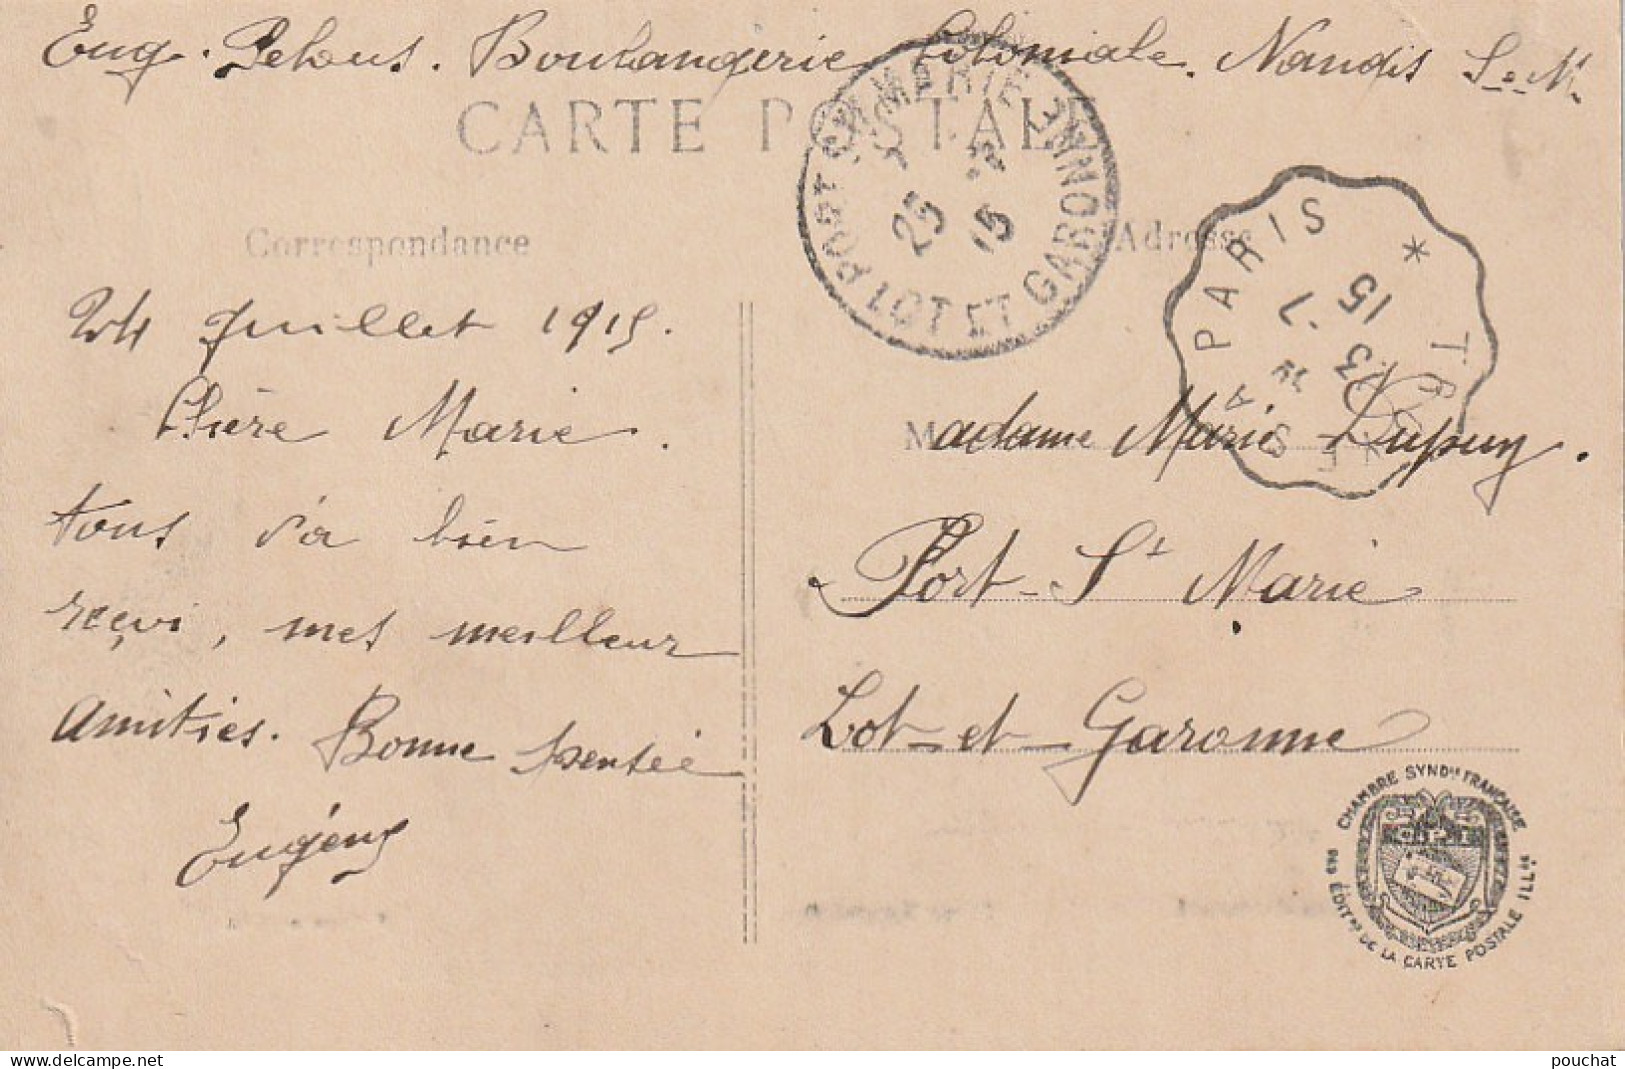 Eug. Pelous. Boulangerie Coloniale. Nangis S.-e-M.
CARTE POSTALE
PORT STE MARIE
LOT ET GARONNE
25 - 7
15
TROYES A PARIS
23 - 7
15
Correspondance
Adresse
24 Juillet 1915.
Chère Marie.
tous s'a bien
reçvi, mes meilleur
amitiés. Bonne pensée
Eugène
Madame Marie Dupuy.
Port-St Marie
Lot-et-Garonne
CHAMBRE SYND^LE FRANÇAISE
DES ÉDIT^RS DE LA CARTE POSTALE ILL^RE
pouchat